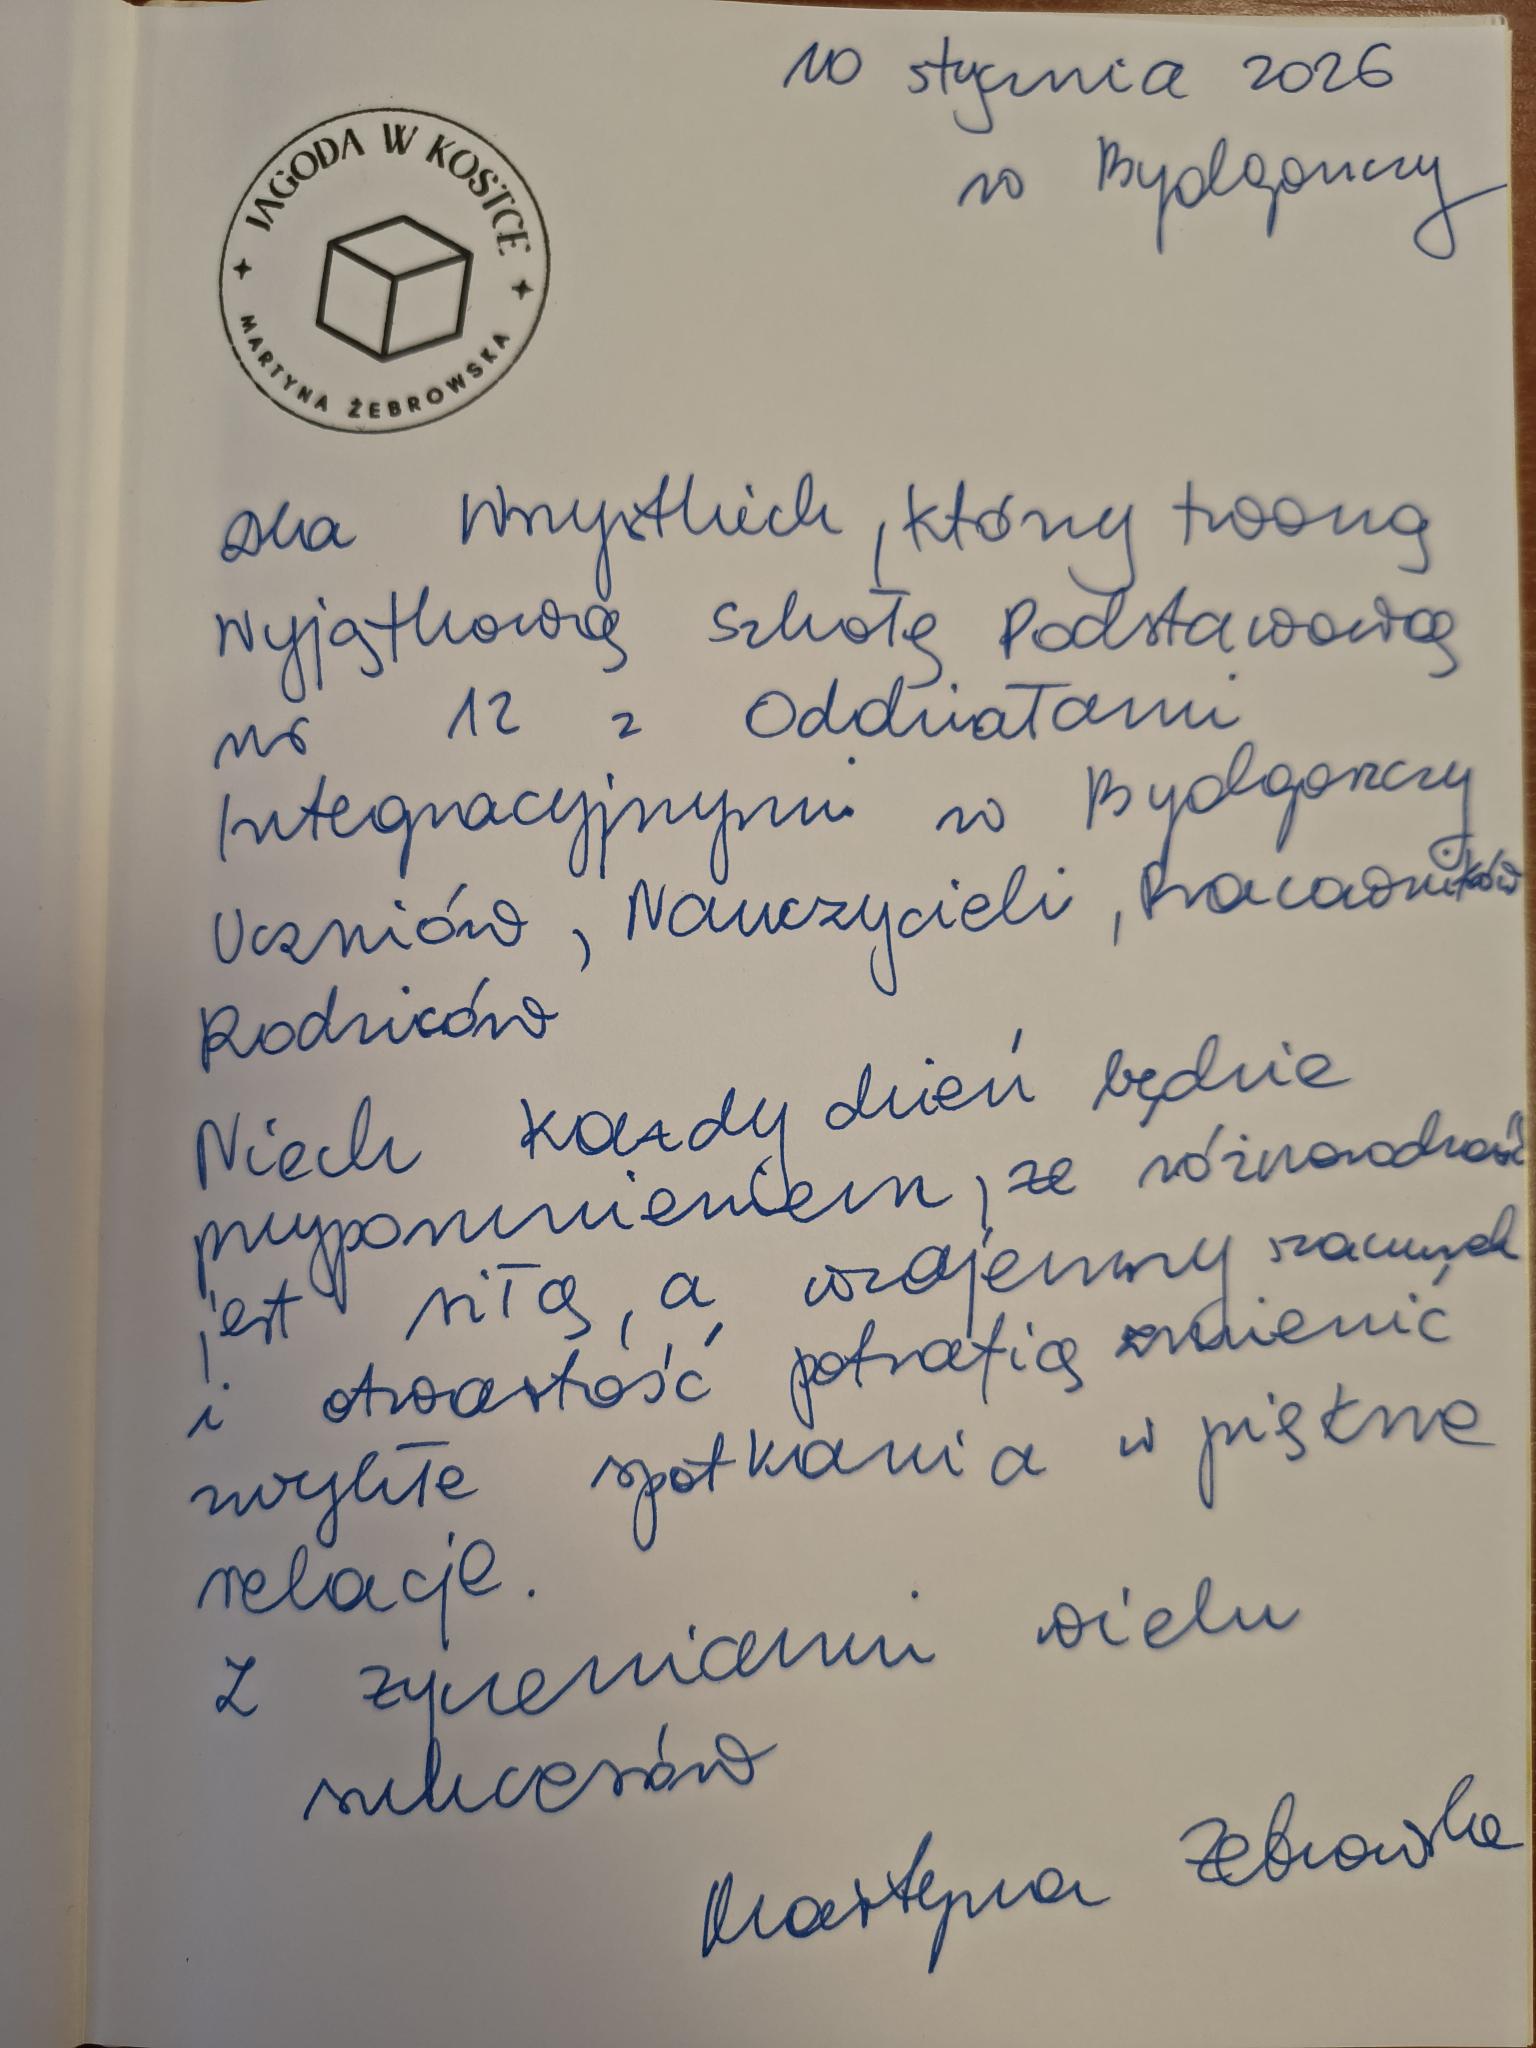 10 stycznia 2026
w Bydgoszczy
JAGODA W KOSTCE
MARTYNA ŻEBROWSKA
Dla Wszystkich, którzy tworzą
Wyjątkową Szkołę Podstawową
nr 12 z Oddziałami
Integracyjnymi w Bydgoszczy
Uczniów, Nauczycieli, Pracowników
Rodziców
Niech każdy dzień będzie
przypomnieniem, że różnorodność
jest siłą, a wzajemny szacunek
i otwartość potrafią zmienić
zwykłe spotkania w piękne
relacje.
Z życzeniami wielu
sukcesów
Martyna Żebrowska